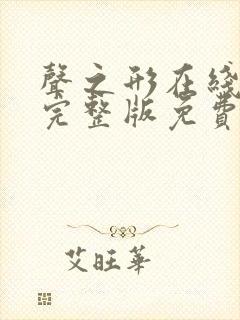 聲之形在綫
完整版免費
艾旺華